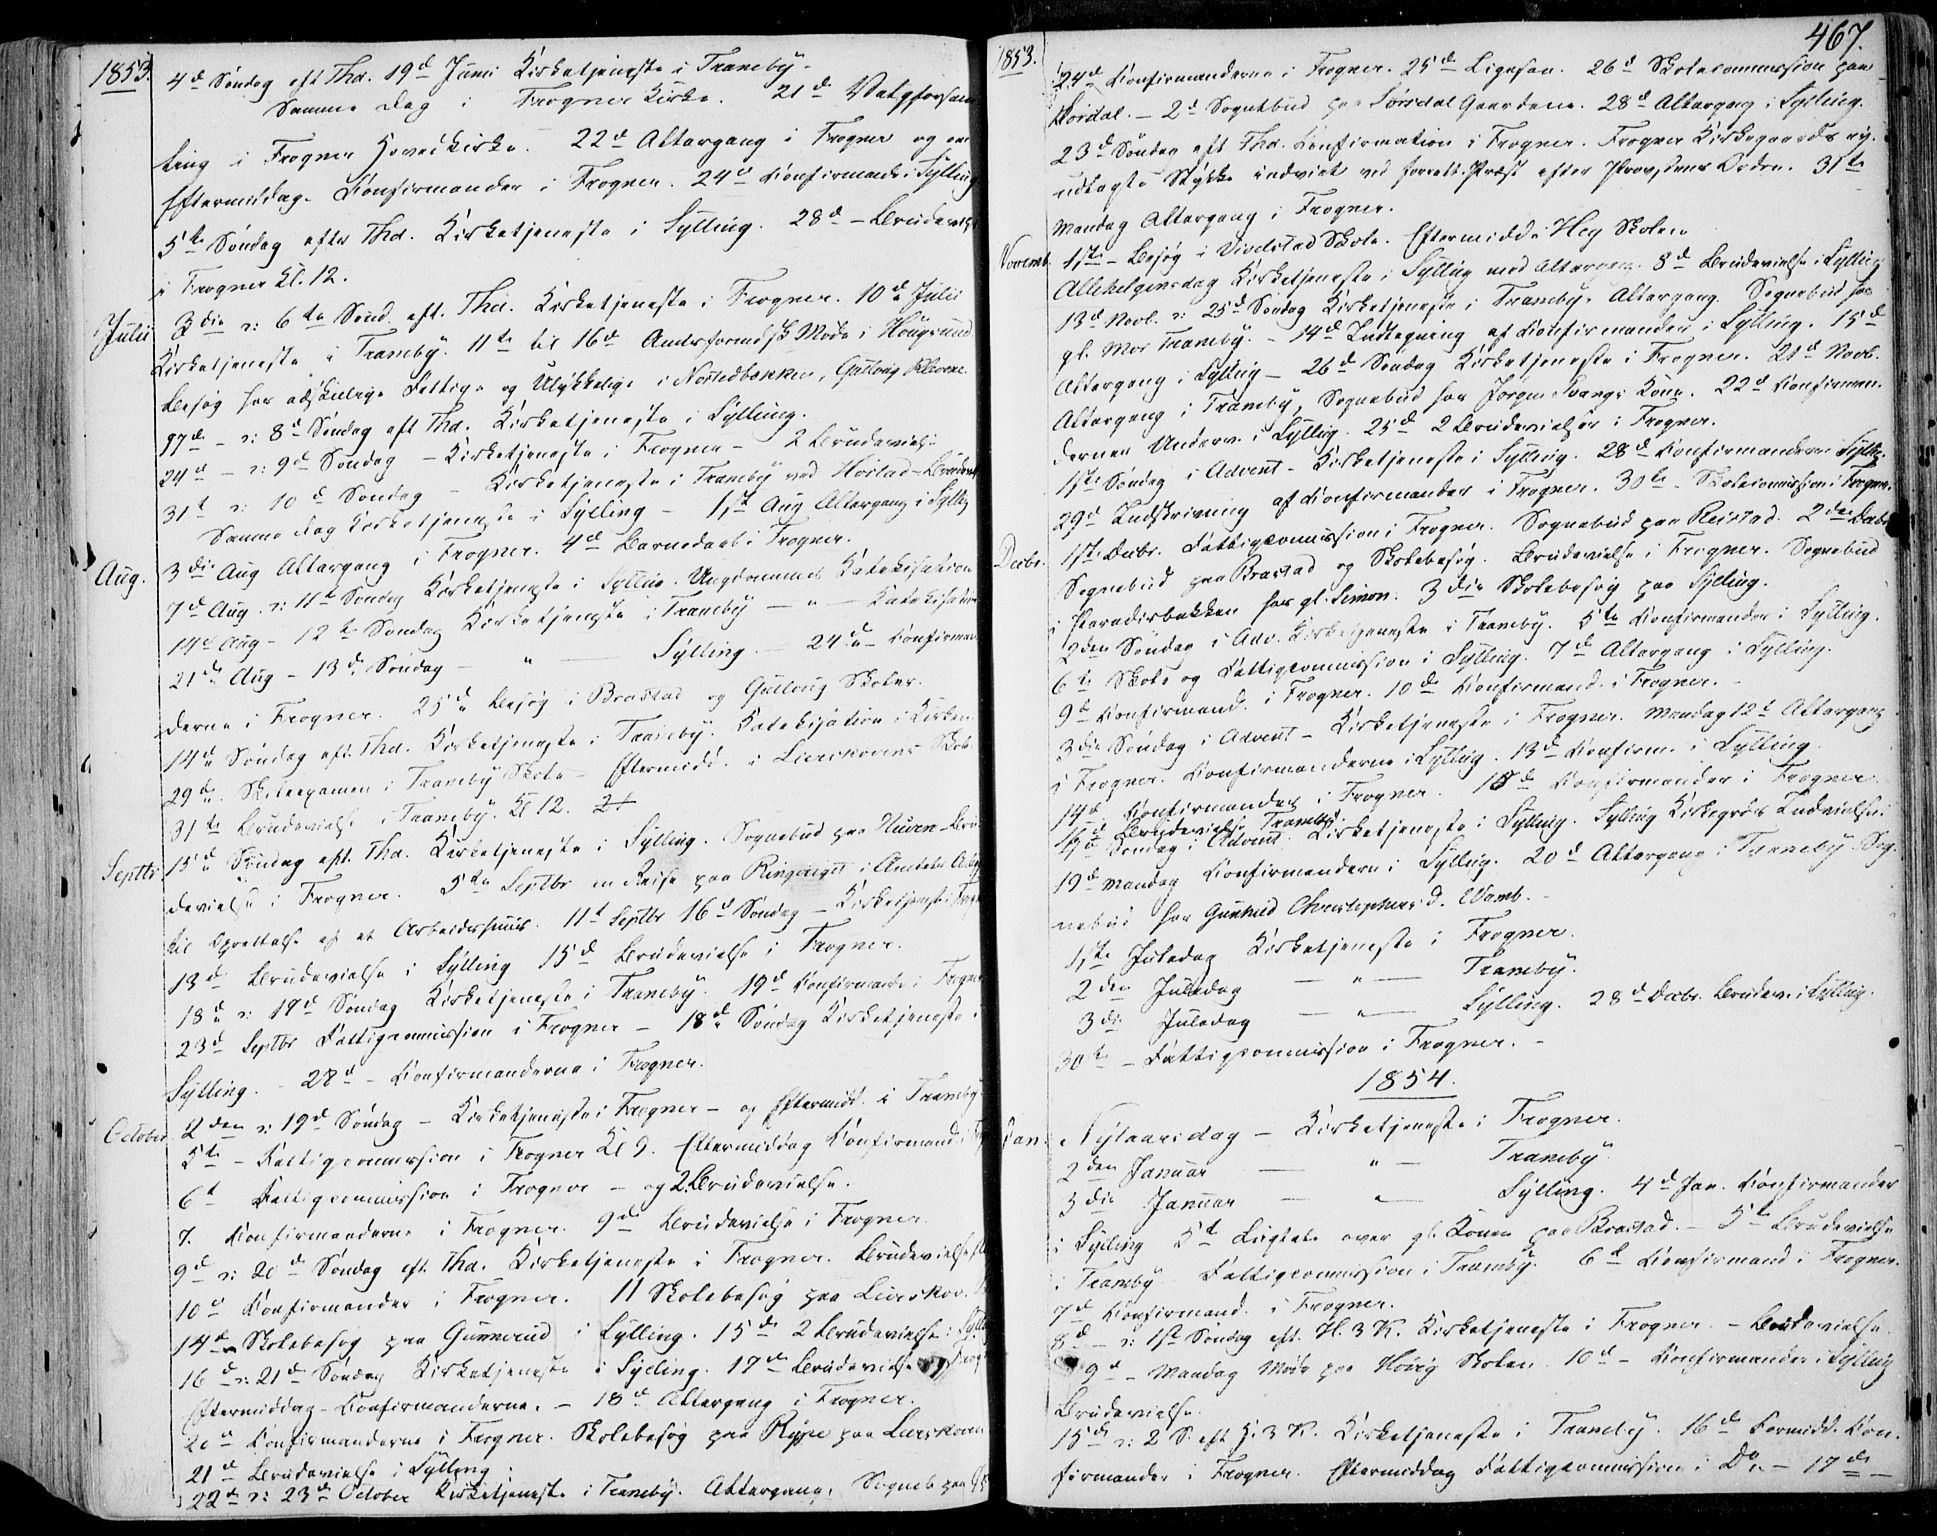 1853. 4d Søndag eft Tha. 19d Juni Kirketjeneste i Traneby.
Samme Dag i Frogner Kirke. 21d Valgforsam
ling i Frogner Hovedkirke. 22d Altergang i Frogner og om
Eftermiddag. Confirmander i Frogner. 24d Confirmande i Sylling
5te Søndag efter Tha. Kirketjeneste i Sylling. 28d - Brudevielse
i Frogner Kl. 12.
Julii 3die ɔ: 6te Sønd. eft. Tha. Kirketjeneste i Frogner. 10de Julii
Kirketjeneste i Traneby. 11te til 16d Amtsformdsk Møde i Hougsund
Besøg hos adskillige Fattige og Ulykkelige i Nøstedbakken, Gulloug
17de - ɔ: 8d Søndag eft Tha. Kirketjeneste i Sylling.
24d - ɔ: 9d Søndag - Kirketjeneste i Frogner - 2 Brudevielse
31t ɔ: 10d Søndag - Kirketjeneste i Tranby ved
Samme Dag Kirketjeneste i Sylling - 1st Aug Altergang i Sylling
Aug. 3die Aug Altergang i Frogner. 4d Barnedaab i Frogner.
7d Aug. ɔ: 11te Søndag Kirketjeneste i Sylling. Ungdommens Katekisation
14d Aug - 12te Søndag Kirketjeneste i Traneby — " — Katekisation
21de Aug - 13de Søndag — " — Sylling — 24de - Confirman
derne i Frogner. 25de Besøg i Brastad og Gulloug Skoler.
14de Søndag eft. Tha. Kirketjeneste i Traneby. Katekisation i Kirken.
29de Skoleexamen i Tranby Skole - Eftermidd. i Lierskovens Skole
31te Brudevielse i Tranby. Kl 12.
Septbr 15de Søndag eft. Tha. Kirketjeneste i Sylling. Sognebud paa Huren - Bru
devielse i Frogner. 5te Septbr en Reise paa Ringerige i Amtets
til Oprettelse af et Arbeidshuus. 11t Septbr 16d Søndag - Kirketjeneste Frogn
13d Brudevielse i Sylling 15d Brudevielse i Frogner.
18de ɔ: 17d Søndag Kirketjeneste i Tranby. 19d Confirmande i Frogner
23d Septbr Fattigcommission i Frogner - 18de Søndag Kirketjeneste i
Sylling. - 28d - Confirmanderne i Frogner.
October 2den ɔ: 19d Søndag - Kirketjeneste i Frogner - og Eftermidd. i Tranby
5te - Fattigcommission i Frogner Kl 9. Eftermiddag Confirmand i
6t Fattigcommission i Frogner - og 2 Brudevielse.
7. Confirmanderne i Frogner. 9d Brudevielse i Frogner.
9d ɔ: 20d Søndag eft Tha. Kirketjeneste i Frogner. Brudevielse
10d Confirmander i Frogner. 11 Skolebesøg paa Lierskov.
14de Skolebesøg paa Gunnerud i Sylling. 15de 2 Brudevielse i Sylling
16d ɔ: 21d Søndag Kirketjeneste i Sylling. 17de Brudevielse
Eftermiddag - Confirmanderne. - 18d Altergang i Frogner.
20d Confirmanderne i Frogner. Skolebesøg paa Rype paa Lierskoven
21d Brudevielse i Sylling.
22d ɔ: 23d October Kirketjeneste i Tranby. Altergang. Sogneb paa
467.
1853. 24d Confirmanderne i Frogner. 25de Ligesaa. 26d Skolecommission paa
Hørdal. - 2d Sognebud paa Sørsdal Gaardene. 28d Altergang i Sylling.
23d Søndag eft Tha. Confirmation i Frogner. Frogner Kirkegaards ny-
udlagte Stykke indviet ved forrett. Præst efter Provstens Orden. 31te
Mandag Altergang i Frogner.
Novemb. 1ste - Besøg i Vivelstad Skole. Eftermidd i Heg Skolen
Allehelgensdag Kirketjeneste i Sylling med Altergang. 8d Brudevielse i Sylling
13d Novb. ɔ: 25d Søndag Kirketjeneste i Tranby. Altergang. Sognebud hos
gl. Mor Tranby. - 14d Indtegning af Confirmander i Sylling. 15d
Altergang i Sylling - 26d Søndag Kirketjeneste i Frogner. 21d Novb.
Altergang i Tranby, Sognebud hos Jørgen Kone. 22d Confirman-
dernes Underv. i Sylling. 25d 2 Brudevielser i Frogner.
1ste Søndag i Advent - Kirketjeneste i Sylling. 28d Confirmanderne Sylling
29d Indskrivning af Confirmander i Frogner. 30te Skolecommission i Frogner.
Decbr. 1ste Decbr. Fattigcommission i Frogner. Sognebud paa Reistad. 2den Decbr
Sognebud paa Brastad og Skolebesøg. Brudevielse i Frogner. Sognebud
i Paradisbakken hos gl. Simon. 3die Skolebesøg paa Sylling.
2den Søndag i Adv. Kirketjeneste i Tranby. 5te Confirmander i Sylling.
6te Skole og Fattigcommission i Sylling. 7d Altergang i Sylling.
9d Confirmand. i Frogner. 10de Confirmand. i Frogner. -
3die Søndag i Advent - Kirketjeneste i Frogner. Mandag 12t Altergang
i Frogner. Confirmanderne i Sylling. 13d Confirm. i Sylling.
14d Confirmander i Frogner. 15de Confirmander i Frogner
16d Brudevielse Tranby.
4de Søndag i Advent. Kirketjeneste i Sylling. Sylling Kirkegrds Indvielse.
19d Mandag Confirmandern i Sylling. 20d Altergang i Tranby. Sog-
nebud hos Gunhild Christophersd. Vamb.
1ste Juledag Kirketjeneste i Frogner.
2den Juledag — " — Tranby.
3die Juledag — " — Sylling. 28d Decbr. Brudev. i Sylling.
30te - Fattigcommission i Frogner. -
1854.
Jan. Nytaarsdag - Kirketjeneste i Frogner.
2den Januar — " — Tranby.
3die Januar — " — Sylling. 4d Jan. Confirmander
i Sylling 5t Ligtale over gl. Konen paa Brastad. - 5te Brudevielse
i Tranby. Fattigcommission i Tranby. 6t Confirmand i Frogner.
7d Confirmand. i Frogner.
8d - ɔ: 1st Søndag eft. H. 3 K. Kirketjeneste i Frogner. - Brudevielse.
9d - Mandag Møde paa Høvig Skolen. 10d - Confirmander i Sylling
Brudevielse.
15d ɔ: 2 S. eft H. 3 K. Kirketjeneste i Tranby. 16d Formidd. Con-
firmander i Frogner. Eftermiddag Fattigcommission i Do. - 17de -